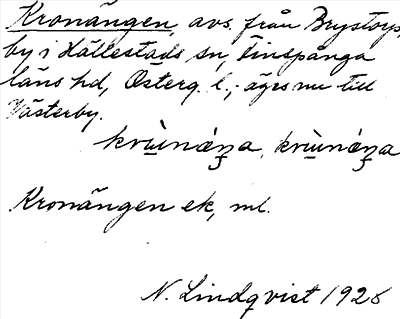 Kronängen, avs. från Brystorp,
by i Hällestads sn, Finspånga
läns hd, Österg. l.; äges nu till
Västerby.
Kronängen ek, ml.
N. Lindqvist 1926